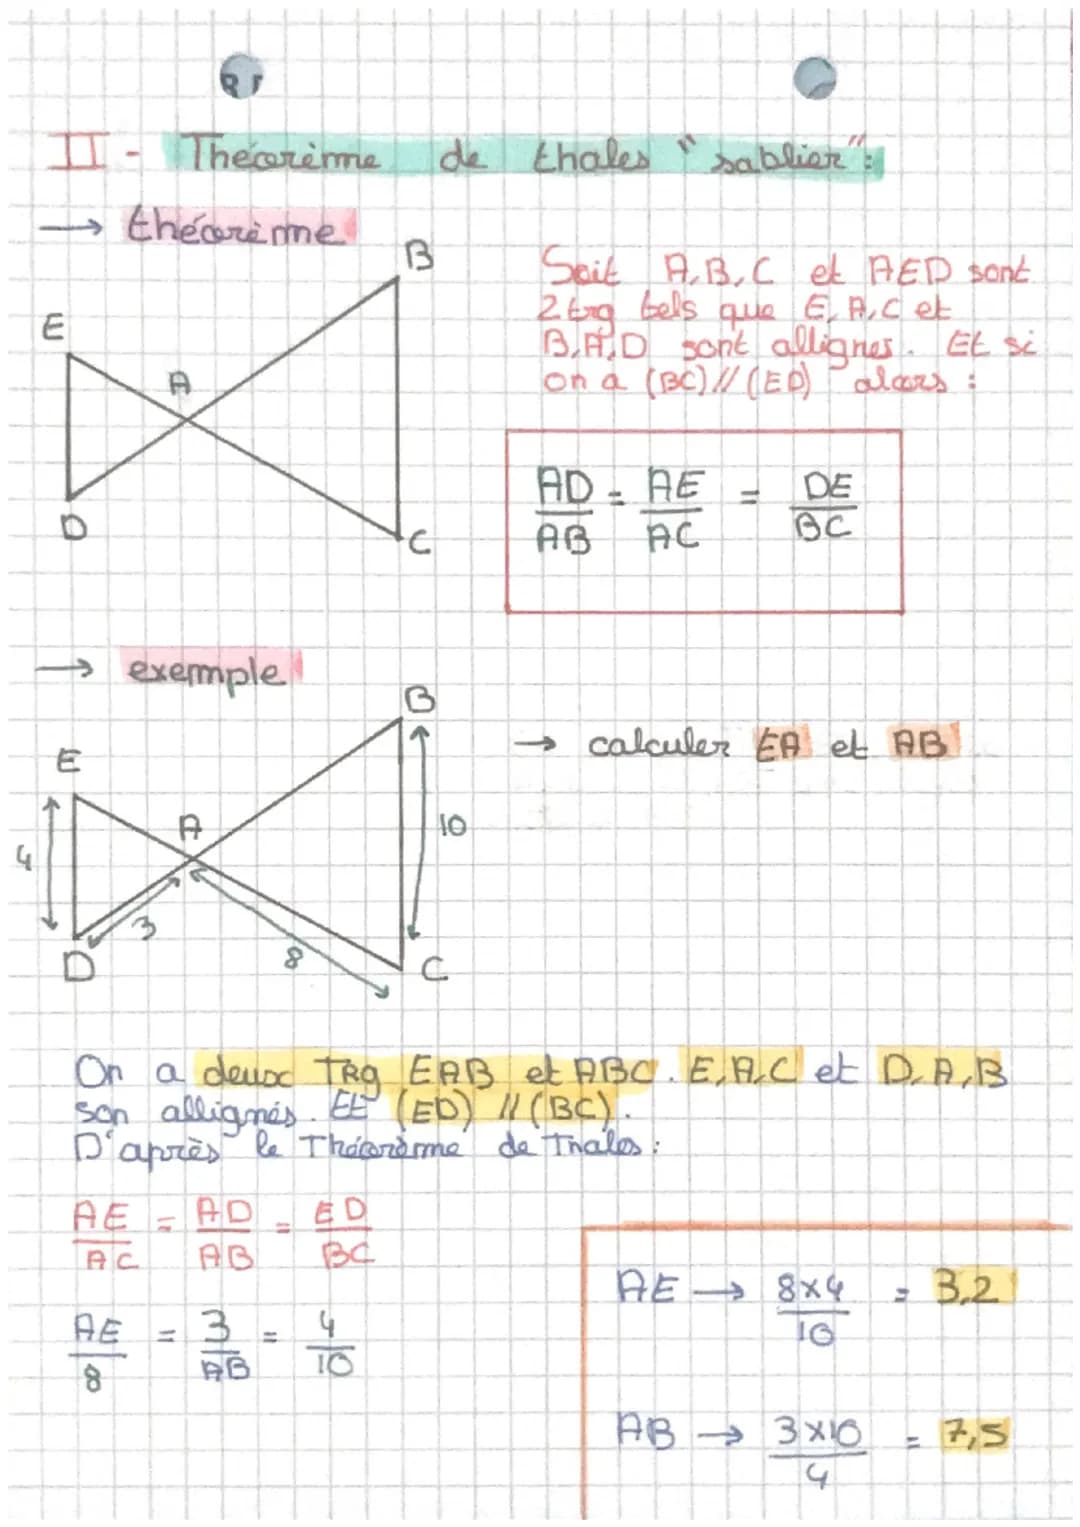 II - Théorème de thales "sablier":
→ théorème
B
E
A
D
C
Soit A,B,C et AED sont
2 trg tels que E,A,C et
B,A,D sont allignes. Et si
on a (BC)//(ED) alors :
AD/AB = AE/AC = DE/BC
→ exemple
B
E
A
4
10
3
8
D
C
→ calculer EA et AB
On a deux TRg EAB et ABC. E,A,C et D,A,B
son allignés. Et (ED) // (BC).
D'après le Théorème de Thales :
AE/AC = AD/AB = ED/BC
AE/8 = 3/AB = 4/10
AE → 8x4/10 = 3,2
AB → 3x10/4 = 7,5